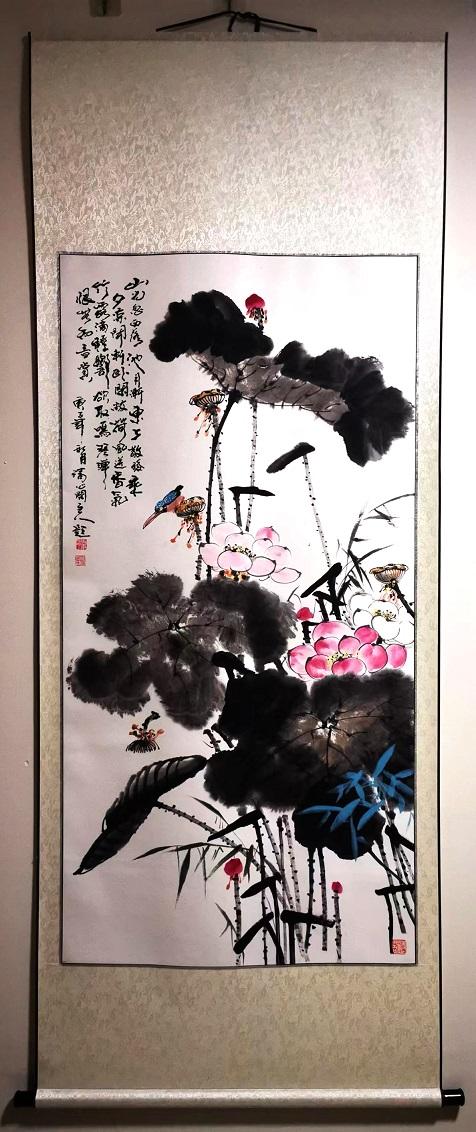 山光忽西落池月漸東上散髮乘
夕凉開軒卧閑敞荷風送香氣
竹露滴清響欲取鳴琴彈
恨無知音賞